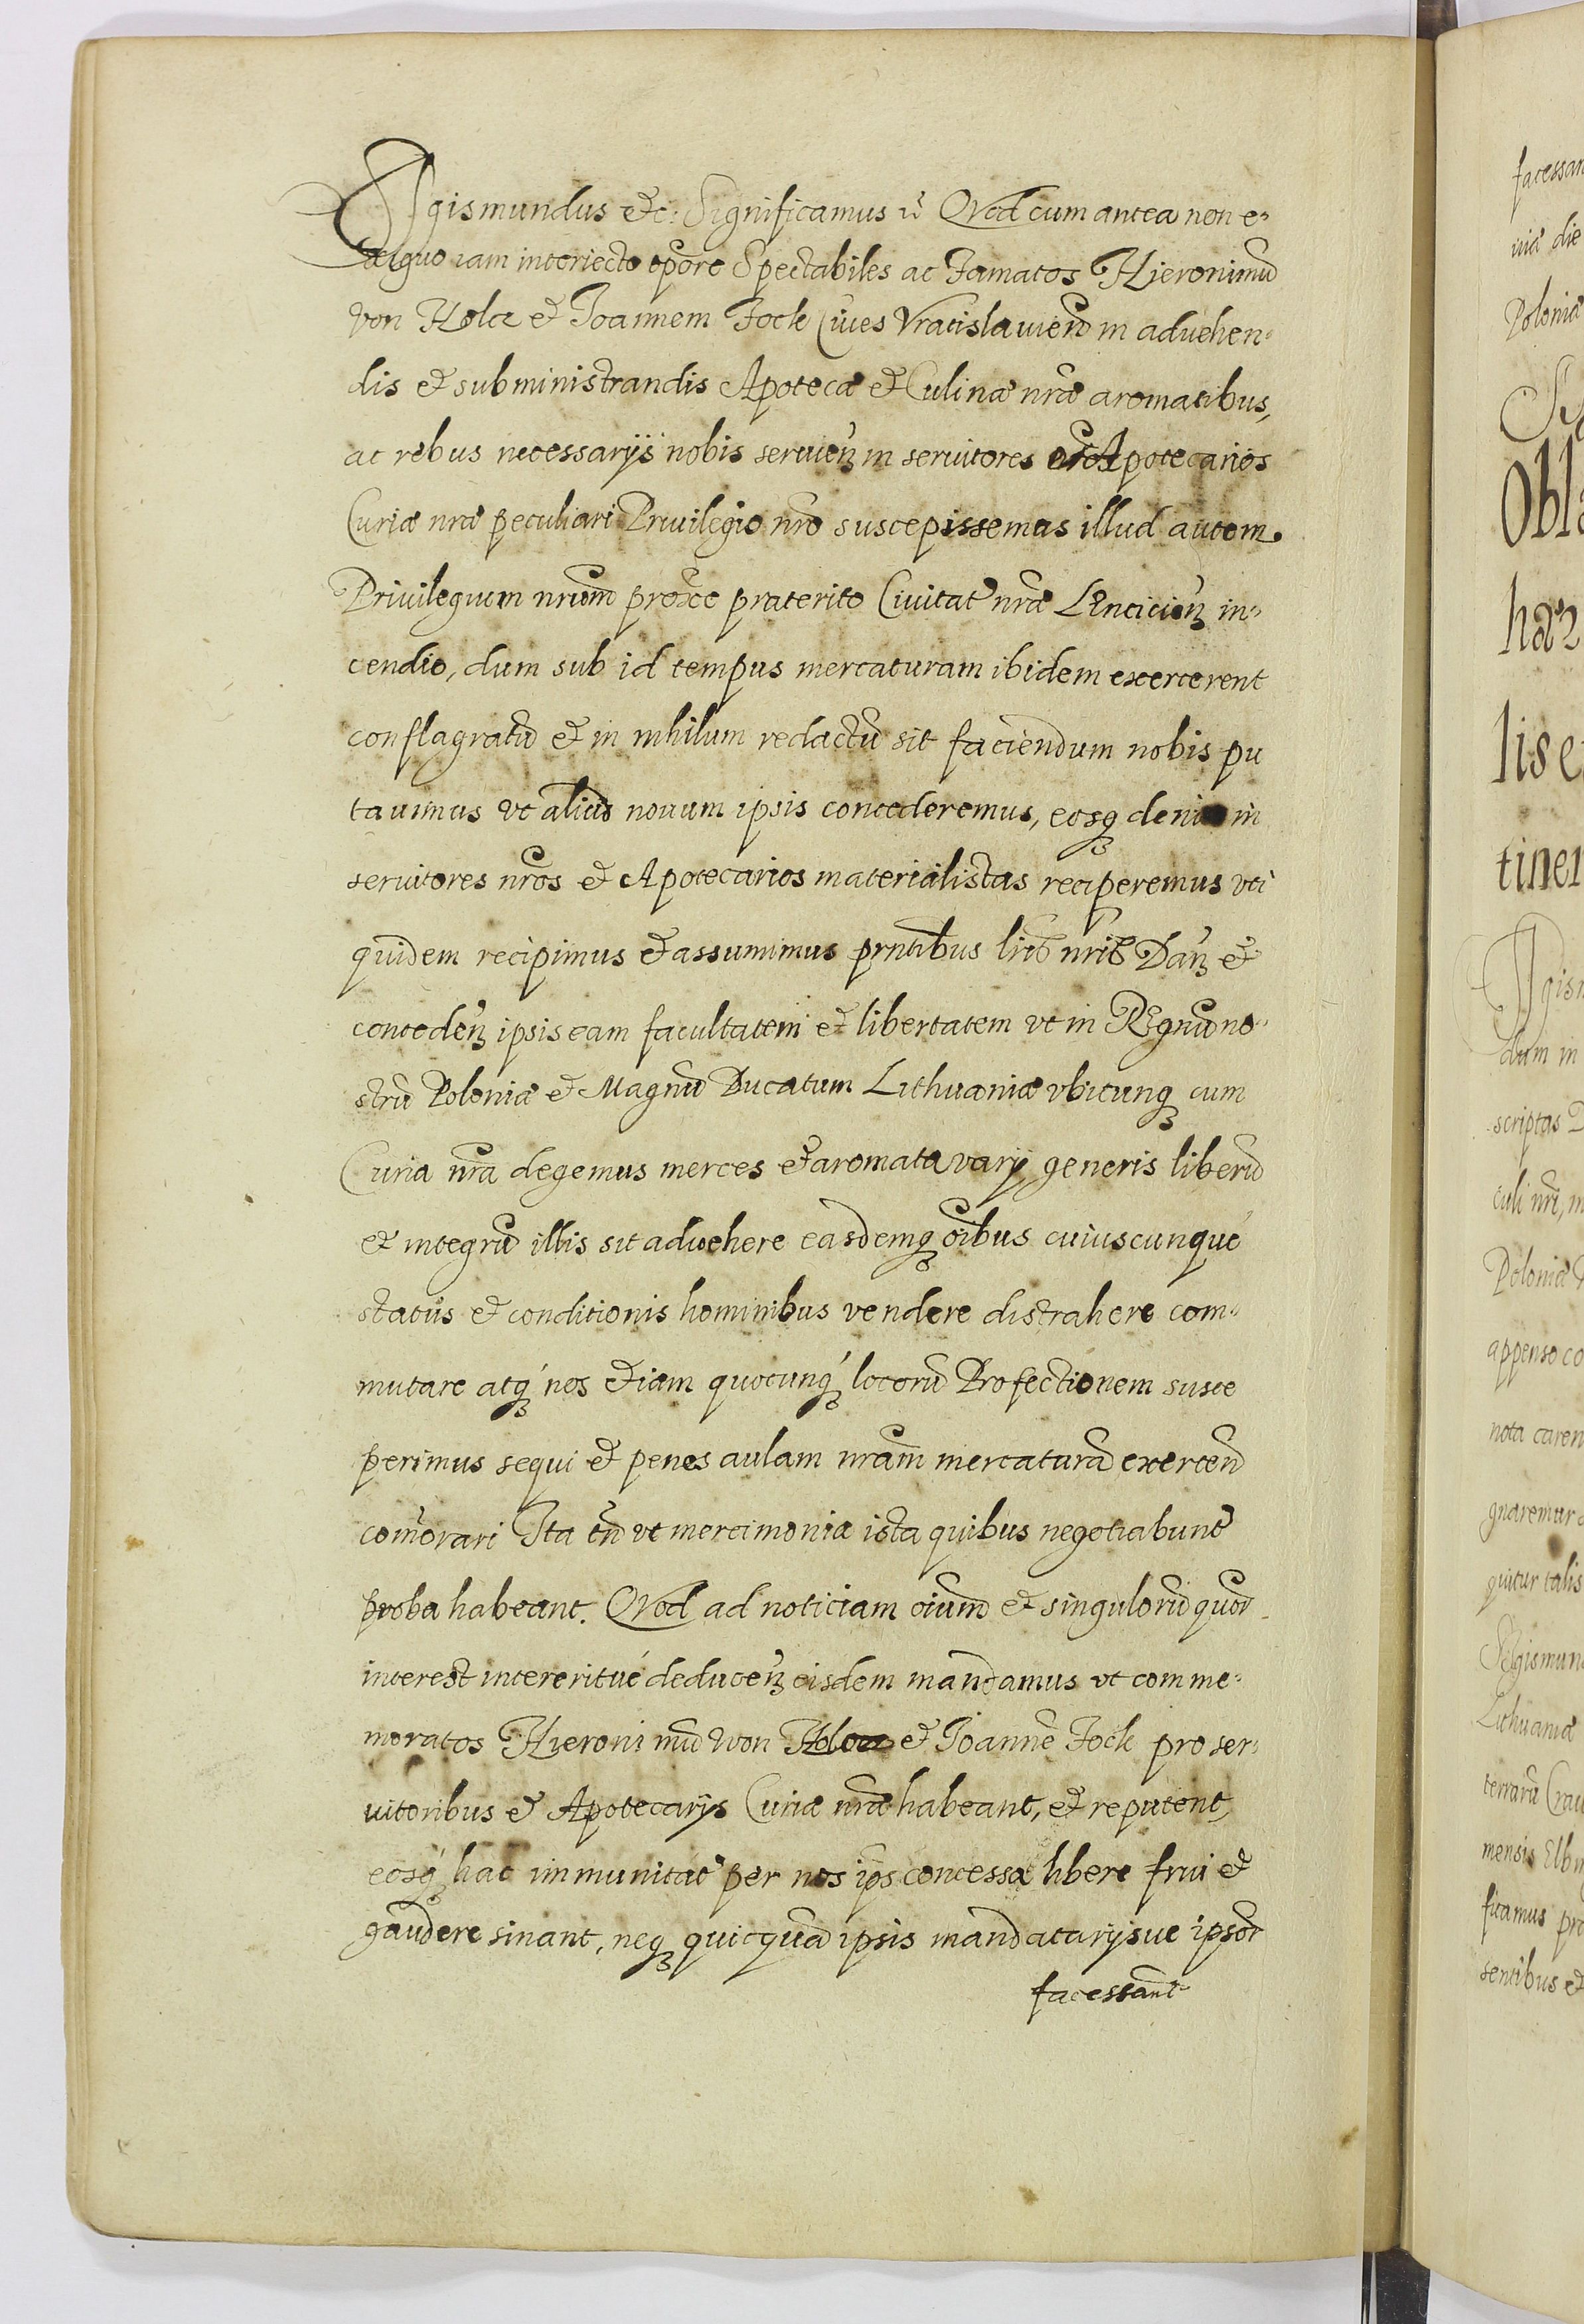 Sigismundus etc: Significamus rc Quod cum antea non e-
xiguo iam interiecto tpore Spectabiles ac Famatos Hieronimu
von Holcz et Ioannem Fock Ciues Vratislauien in aduehen-
dis et subministrandis Apotecæ et Culinæ nræ aromatibus,
ac rebus necessarijs nobis seruien in seruitores Apotecarios
Curiæ nræ peculiari Priuilegio nro suscepissemus illud autem
Priuilegium nrum proxe præterito Ciuitat nræ Lencicien in-
cendio, dum sub id tempus mercaturam ibidem exercerent
conflagratu et in nihilum redactu sit faciendum nobis pu
tauimus vt aliud nouum ipsis concederemus, eosq denuo in
seruitores nros et Apotecarios materialistas reciperemus vti
quidem recipimus et assumimus prntibus lris nris Dan et
conceden ipsis eam facultatem et libertatem vt in Regnu no-
stru Poloniæ et Magnu Ducatum Lithuaniæ vbicunq cum
Curia nra degemus merces et aromata varij generis liberu
et integru illis sit aduehere easdemq oibus cuiuscunque
status et conditionis hominibus vendere distrahere com-
mutare atq nos etiam quocunq locoru Profectionem susce
perimus sequi et penes aulam nram mercatura exercen
comorari Ita tn vt mercimonia ista quibus negotiabunt
proba habeant. Quod ad noticiam oium et singuloru quor
interest intereritue deducen eisdem mandamus vt comme-
moratos Hieronimu von Holcz et Ioanne Fock pro ser-
uitoribus et Apotecarijs Curiæ nræ habeant, et reputent,
eosq hac immunitat per nos ips concessa libere frui et
gaudere sinant, neq quicqua ipsis mandatarijsue ipsor
facessant
facessan
Polonia
Obla
lis e
tiner
dum in
scriptas
culi nri, m
Polonia
appenso co
nota caren
gnaremur
quitur talis
Sigismun
Lithuaniæ
terraru Crac
mensis Elbin
ficamus pr
sentibus et